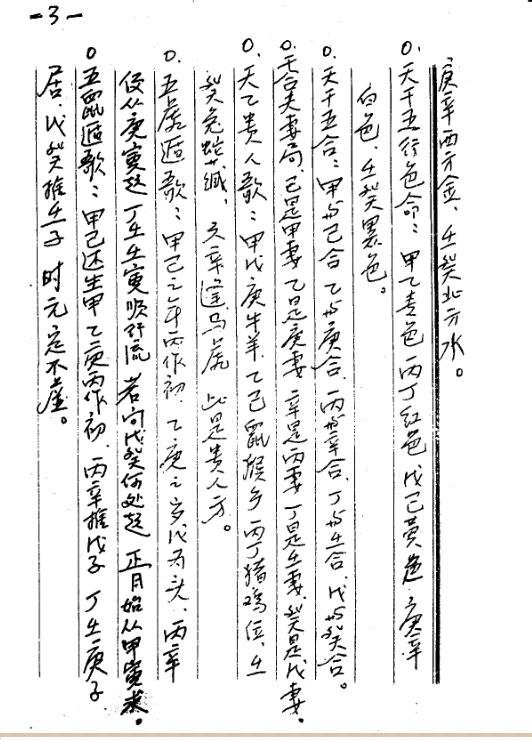 -3-
庚辛西方金、壬癸北方水。
0、天干五行色命：甲乙青色 丙丁红色 戊己黄色 庚辛
白色、壬癸黑色。
0、天干五合：甲与己合 乙与庚合、丙与辛合、丁与壬合、戊与癸合。
0、五合夫妻局、己是甲妻 乙是庚妻 辛是丙妻 丁是壬妻、癸是戊妻。
0、天乙贵人歌：甲戊庚牛羊、乙己鼠猴乡 丙丁猪鸡位、壬
癸兔蛇藏、六辛逢马虎 此是贵人方。
0、五虎遁歌：甲己之年丙作初、乙庚之岁戊为头、丙辛
便从庚寅起 丁壬壬寅顺行流 若问戊癸何处起 正月始从甲寅求。
0、五鼠遁歌：甲己还生甲 乙庚丙作初、丙辛推戊子 丁壬庚子
居、戊癸推壬子 时元定不虚。